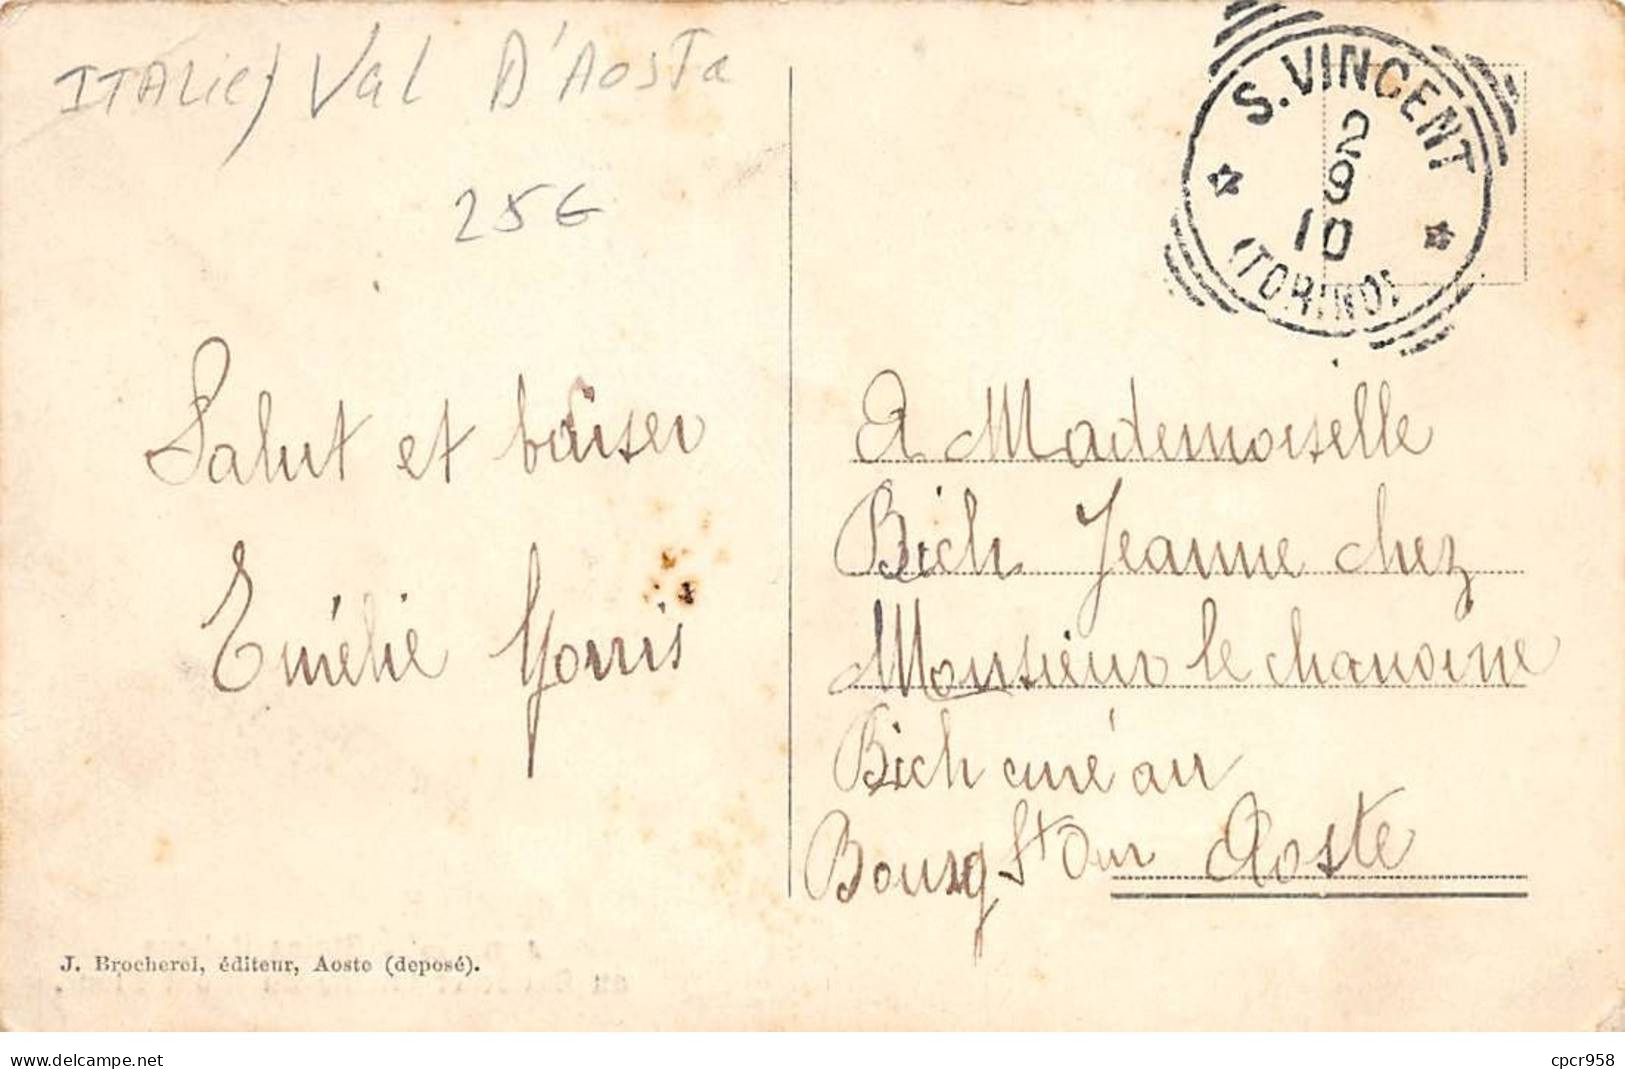 ITALie) Val D'AosTa
25€
S. VINCENT
2
9
10
(TORINO)
Salut et baiser
Emélie
A Mademoiselle
Bich Jeanne chez
Monsieur le chanoine
Bich curé au
Bourg St Our Aoste
J. Brocherel, éditeur, Aoste (deposé).
cpcr958
www.delcampe.net